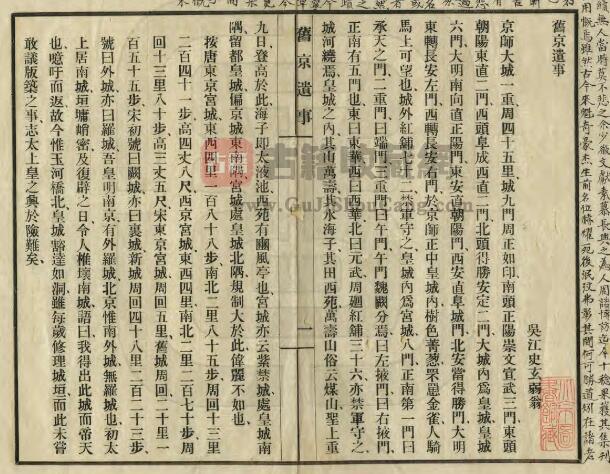 舊京遺事
吳江史玄弱翁
京師大城一重周四十五里城九門周正如印南頭正陽崇文宣武三門東頭
朝陽東直二門西頭阜成西直二門北頭得勝安定二門大城內爲皇城皇城
六門大明南向直正陽門東安直朝陽門西安直阜城門北安當得勝門大明
東轉長安左門西轉長安右門於京師正中皇城內樹色菁葱罘罳金雀人騎
馬上可望也城外紅鋪七十二禁軍守之皇城內爲宮城八門正南第一門曰
承天之門二重門曰端門三重門曰午門午門魏觀分焉曰左掖門曰右掖門
正南有五門也東曰東華西曰西華北曰元武周廻紅鋪三十六亦禁軍守之
城河繞焉皇城之內其山萬壽其水海子其田西苑萬壽山俗云煤山聖上重
九日登高於此海子即太液池西苑有豳風亭也宮城亦云紫禁城處皇城南
隅留都皇城偏京城東南隅宮城處皇城北隅規制大於此偉麗不如也
按唐東京宮城東西四里一百八十八步南北二里八十五步周回十三里
二百四十一步高四丈八尺西京宮城東西四里南北二里二百七十步周
回十三里八十步高三丈五尺宋東京宮城周回五里舊城周回二十里一
百五十五步宋初號曰闕城亦曰裏城新城周回四十八里二百二十三步
號曰外城亦曰羅城吾皇明南京有外羅城北京惟南外城無羅城也初太
上居南城垣墉峭密及復辟之日令人椎壞南城語曰我得出此城而帝天
也噫吁而返故今惟玉河橋北皇城豁達如洞雖每歲修理城垣而此未嘗
敢議版築之事志太上皇之興於險難矣
舊京遺事
一
古籍收藏網
www.GuJiShouCang.com